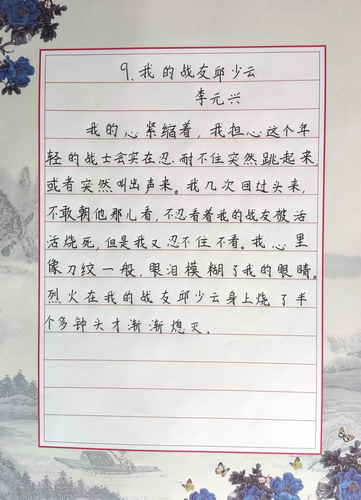 9.我的战友邱少云
李元兴
我的心紧缩着，我担心这个年
轻的战士会实在忍耐不住突然跳起来，
或者突然叫出声来。我几次回过头来，
不敢朝他那儿看，不忍看着我的战友被活
活烧死，但是我又忍不住不看。我心里
像刀绞一般，眼泪模糊了我的眼睛。
烈火在我的战友邱少云身上烧了半
个多钟头才渐渐熄灭。